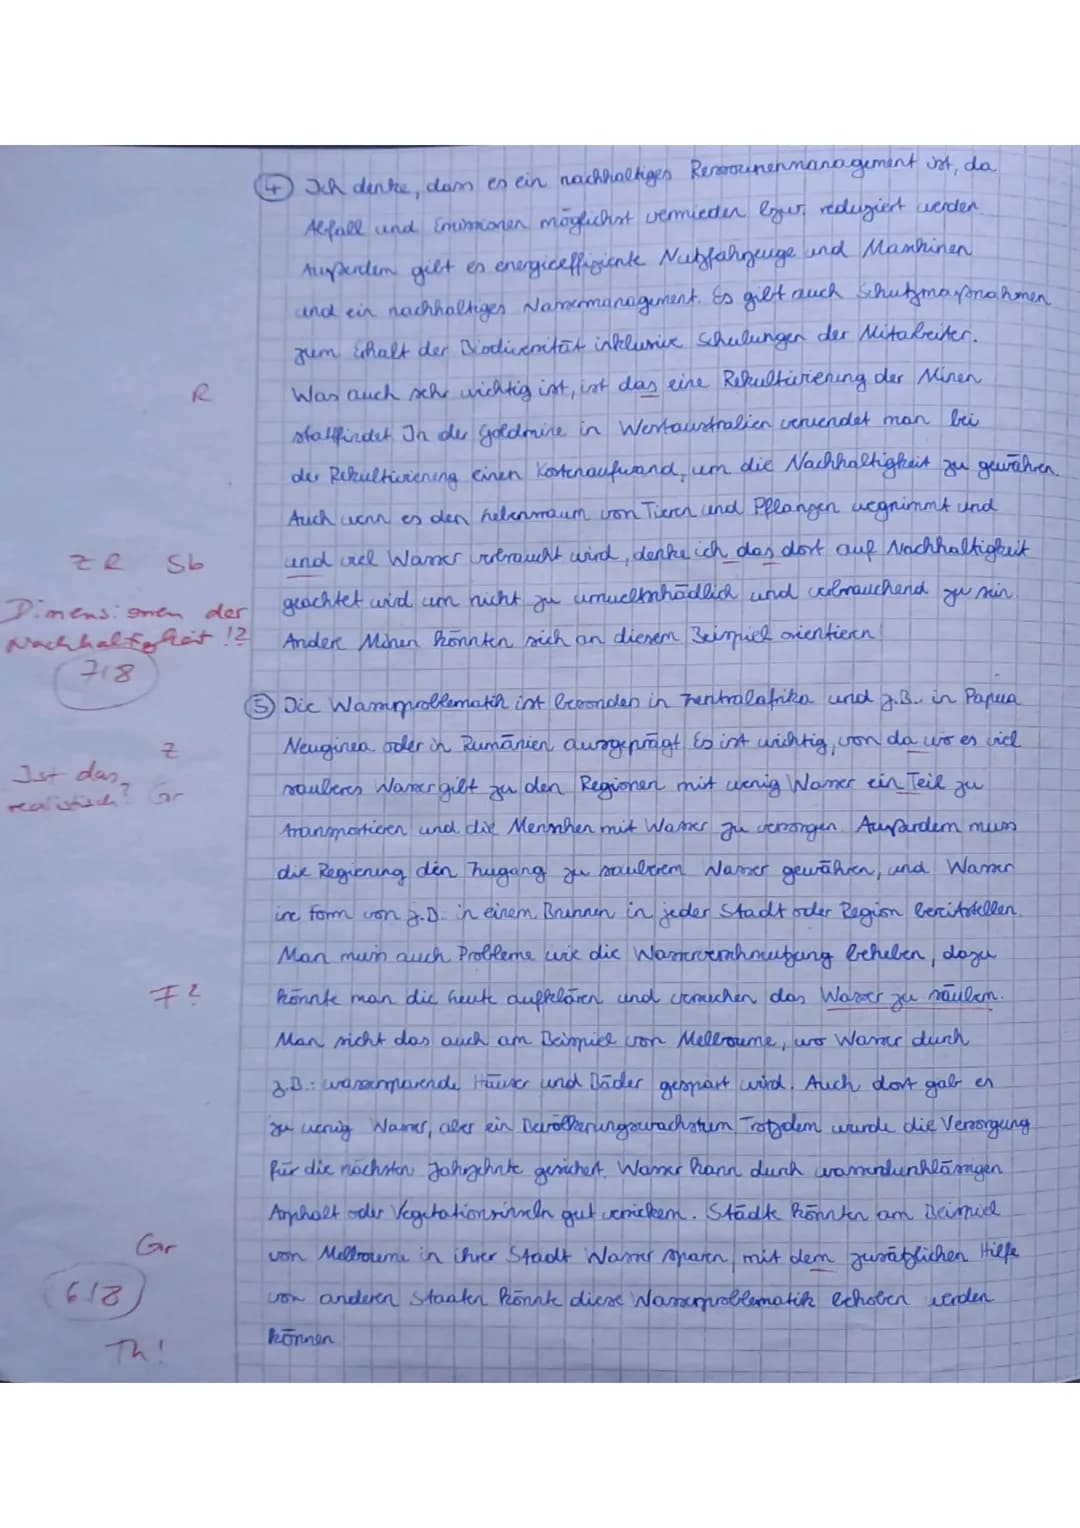 ④ Ich denke, dass es ein nachhaltiges Ressourcenmanagement ist, da
Abfall und Emissionen möglichst vermieden bzw. reduziert werden.
Außerdem gibt es energieeffiziente Nutzfahrzeuge und Maschinen
und ein nachhaltiges Wassermanagement. Es gibt auch Schutzmaßnahmen
zum Erhalt der Biodiversität inklusive Schulungen der Mitarbeiter.
R Was auch sehr wichtig ist, ist das eine Rekultivierung der Minen
stattfindet. In der Goldmine in Westaustralien verwendet man bei
der Rekultivierung einen Kostenaufwand, um die Nachhaltigkeit zu gewähren.
Auch wenn es den Lebensraum von Tieren und Pflanzen wegnimmt und
Z R Sb und viel Wasser verbraucht wird, denke ich das dort auf Nachhaltigkeit
Dimensionen der geachtet wird um nicht zu umweltschädlich und verbrauchend zu sein.
Nachhaltigkeit !? Andere Minen könnten sich an diesem Beispiel orientieren
7/8
⑤ Die Wasserproblematik ist besonders in Zentralafrika und z.B. in Papua
Z Neuginea oder in Rumänien ausgeprägt. Es ist wichtig, von da wo es viel
Ist das realistisch? Gr sauberes Wasser gibt zu den Regionen mit wenig Wasser ein Teil zu
transportieren und die Menschen mit Wasser zu versorgen. Außerdem muss
die Regierung den Zugang zu sauberem Wasser gewähren, und Wasser
in Form von z.B. in einem Brunnen in jeder Stadt oder Region bereitstellen.
Man muss auch Probleme wie die Wasserverschmutzung beheben, dazu
F? könnte man die Leute aufklären und versuchen das Wasser zu säubern.
Man sieht das auch am Beispiel von Mellbourne, wo Wasser durch
z.B.: wassersparende Häuser und Bäder gespart wird. Auch dort gab es
zu wenig Wasser, aber ein Bevölkerungswachstum. Trotzdem wurde die Versorgung
für die nächsten Jahrzehnte gesichert. Wasser kann durch wasserdurchlässigen
Asphalt oder Vegetationsinseln gut versickern. Städte könnten am Beispiel
Gr von Mellbourne in ihrer Stadt Wasser sparen, mit dem zusätzlichen Hilfe
6/8 von anderen Staaten könnte diese Wasserproblematik behoben werden
Th! können